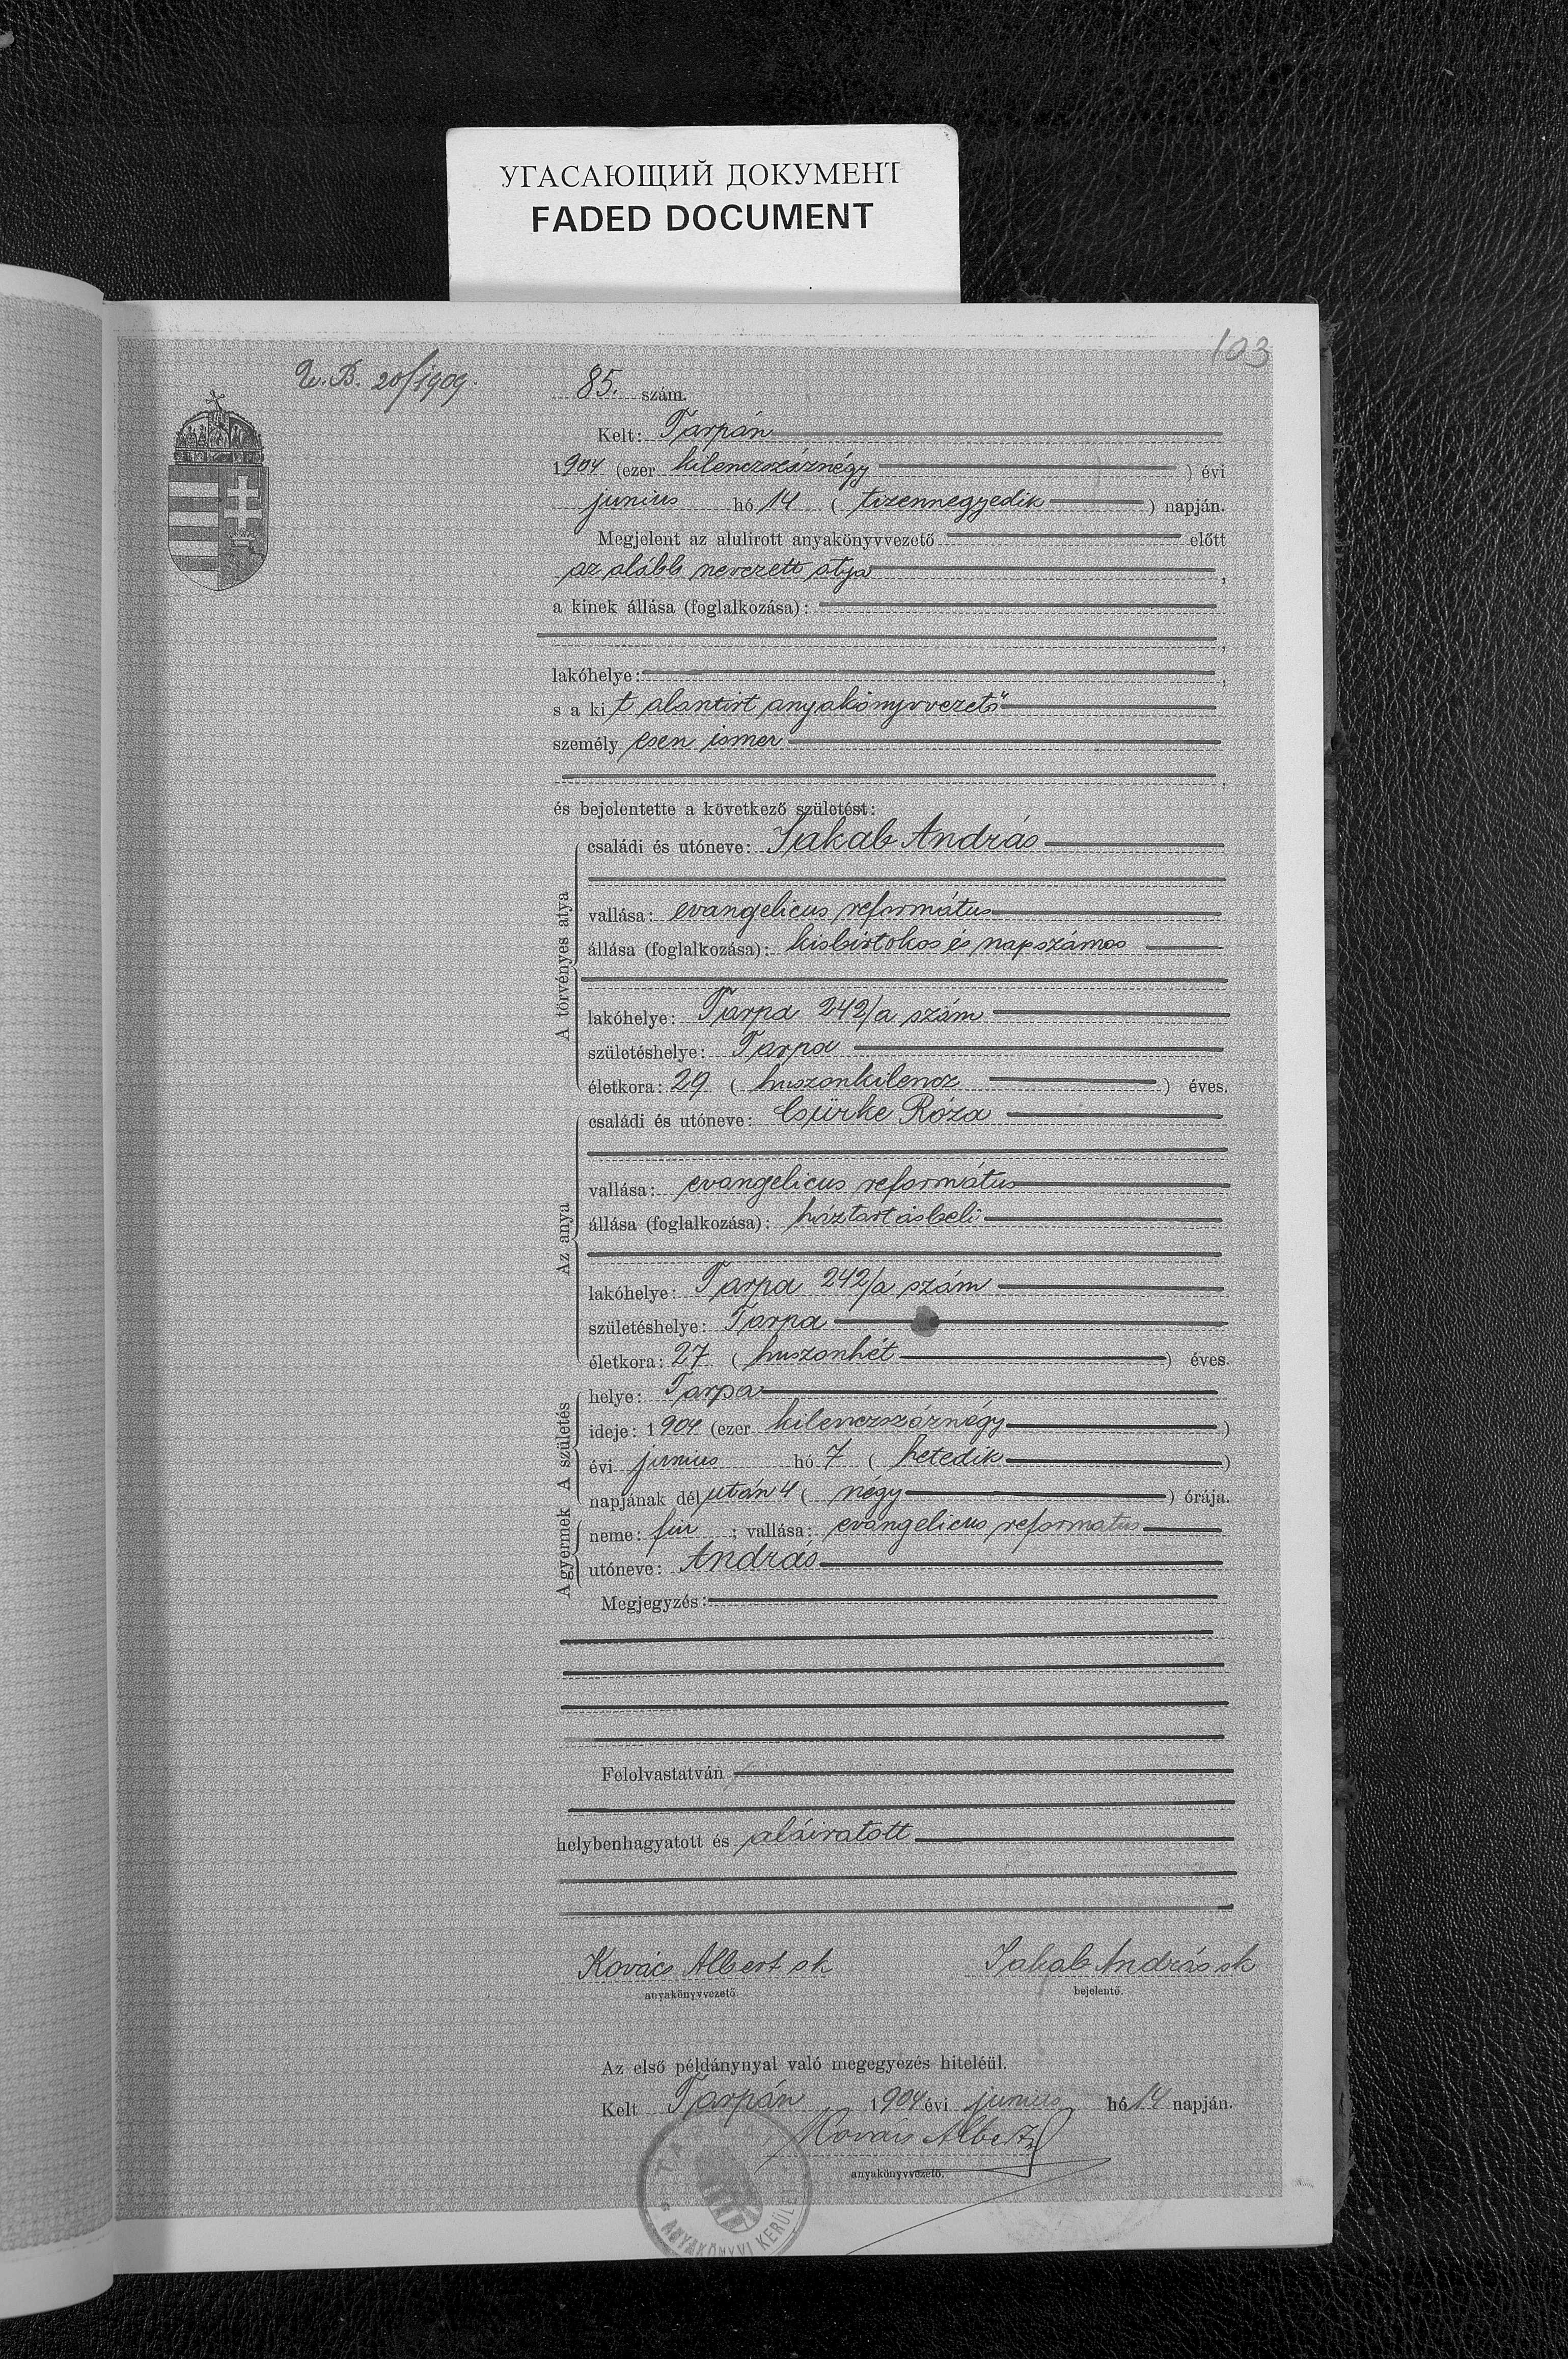 УГАСАЮЩИЙ ДОКУМЕНТ
FADED DOCUMENT
103
20/1909.
85. szám.
Kelt: Tarpán
1904 (ezer kilenczszáznégy ) évi
junius hó 14 ( tizennegyedik ) napján.
Megjelent az alulirott anyakönyvvezető előtt
az alább nevezett atya ,
a kinek állása (foglalkozása):
,
lakóhelye: ,
s a kit alantirt anyakönyvvezető
személyesen ismer
,
és bejelentette a következő születést:
A törvényes atya
családi és utóneve: Jakab András
vallása: evangelicus református
állása (foglalkozása): kisbirtokos és napszámos
lakóhelye: Tarpa 242/a szám
születéshelye: Tarpa
életkora: 29 ( huszonkilencz ) éves.
Az anya
családi és utóneve: Csürke Róza
vallása: evangelicus református
állása (foglalkozása): háztartásbeli
lakóhelye: Tarpa 242/a szám
születéshelye: Tarpa
életkora: 27 ( huszonhét ) éves.
A születés
helye: Tarpa
ideje: 1904 (ezer kilenczszáznégy )
évi junius hó 7 ( hetedik )
napjának délután 4 ( négy ) órája.
A gyermek
neme: fiu ; vallása: evangelicus reformatus
utóneve: András
Megjegyzés:
Felolvastatván
helybenhagyatott és aláiratott
Kovács Albert sk Jakab András sk
anyakönyvvezető bejelentő.
Az első példánynyal való megegyezés hiteléül.
Kelt Tarpán 1904 évi junius hó 14 napján.
Kovács Albert
anyakönyvvezető.
TARPAI ANYAKÖNYVI KERÜL